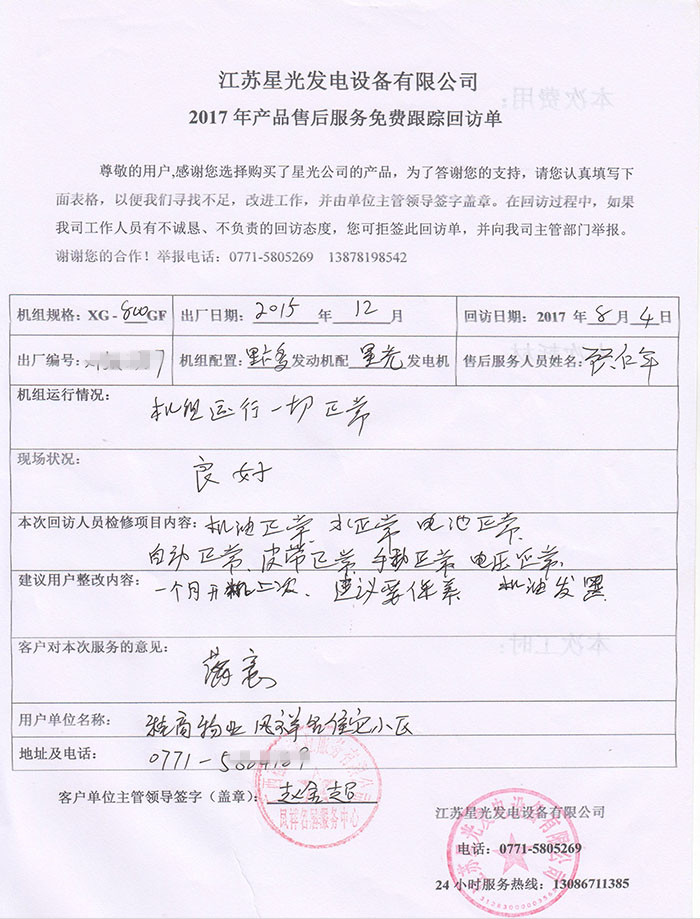 江苏星光发电设备有限公司
2017 年产品售后服务免费跟踪回访单
尊敬的用户,感谢您选择购买了星光公司的产品，为了答谢您的支持，请您认真填写下
面表格，以便我们寻找不足，改进工作，并由单位主管领导签字盖章。在回访过程中，如果
我司工作人员有不诚恳、不负责的回访态度，您可拒签此回访单，并向我司主管部门举报。
谢谢您的合作！举报电话：0771-5805269 13878198542
机组规格：XG - 800GF 出厂日期：2015 年 12 月 回访日期：2017 年 8 月 4 日
出厂编号： 7 机组配置： 发动机配 星光 发电机 售后服务人员姓名：
机组运行情况：
机组运行一切正常
现场状况：
良好
本次回访人员检修项目内容：机油正常、水正常、电池正常、
自动正常、皮带正常、手动正常、电压正常、
建议用户整改内容：一个月开机二次、建议要保养 机油发黑
客户对本次服务的意见：
满意
用户单位名称： 物业 凤祥名居住宅小区
地址及电话： 0771-5
客户单位主管领导签字（盖章）：
凤祥名居服务中心
江苏星光发电设备有限公司
电话：0771-5805269
24 小时服务热线：13086711385
江苏星光发电设备有限公司
本次费用：
本次工时：